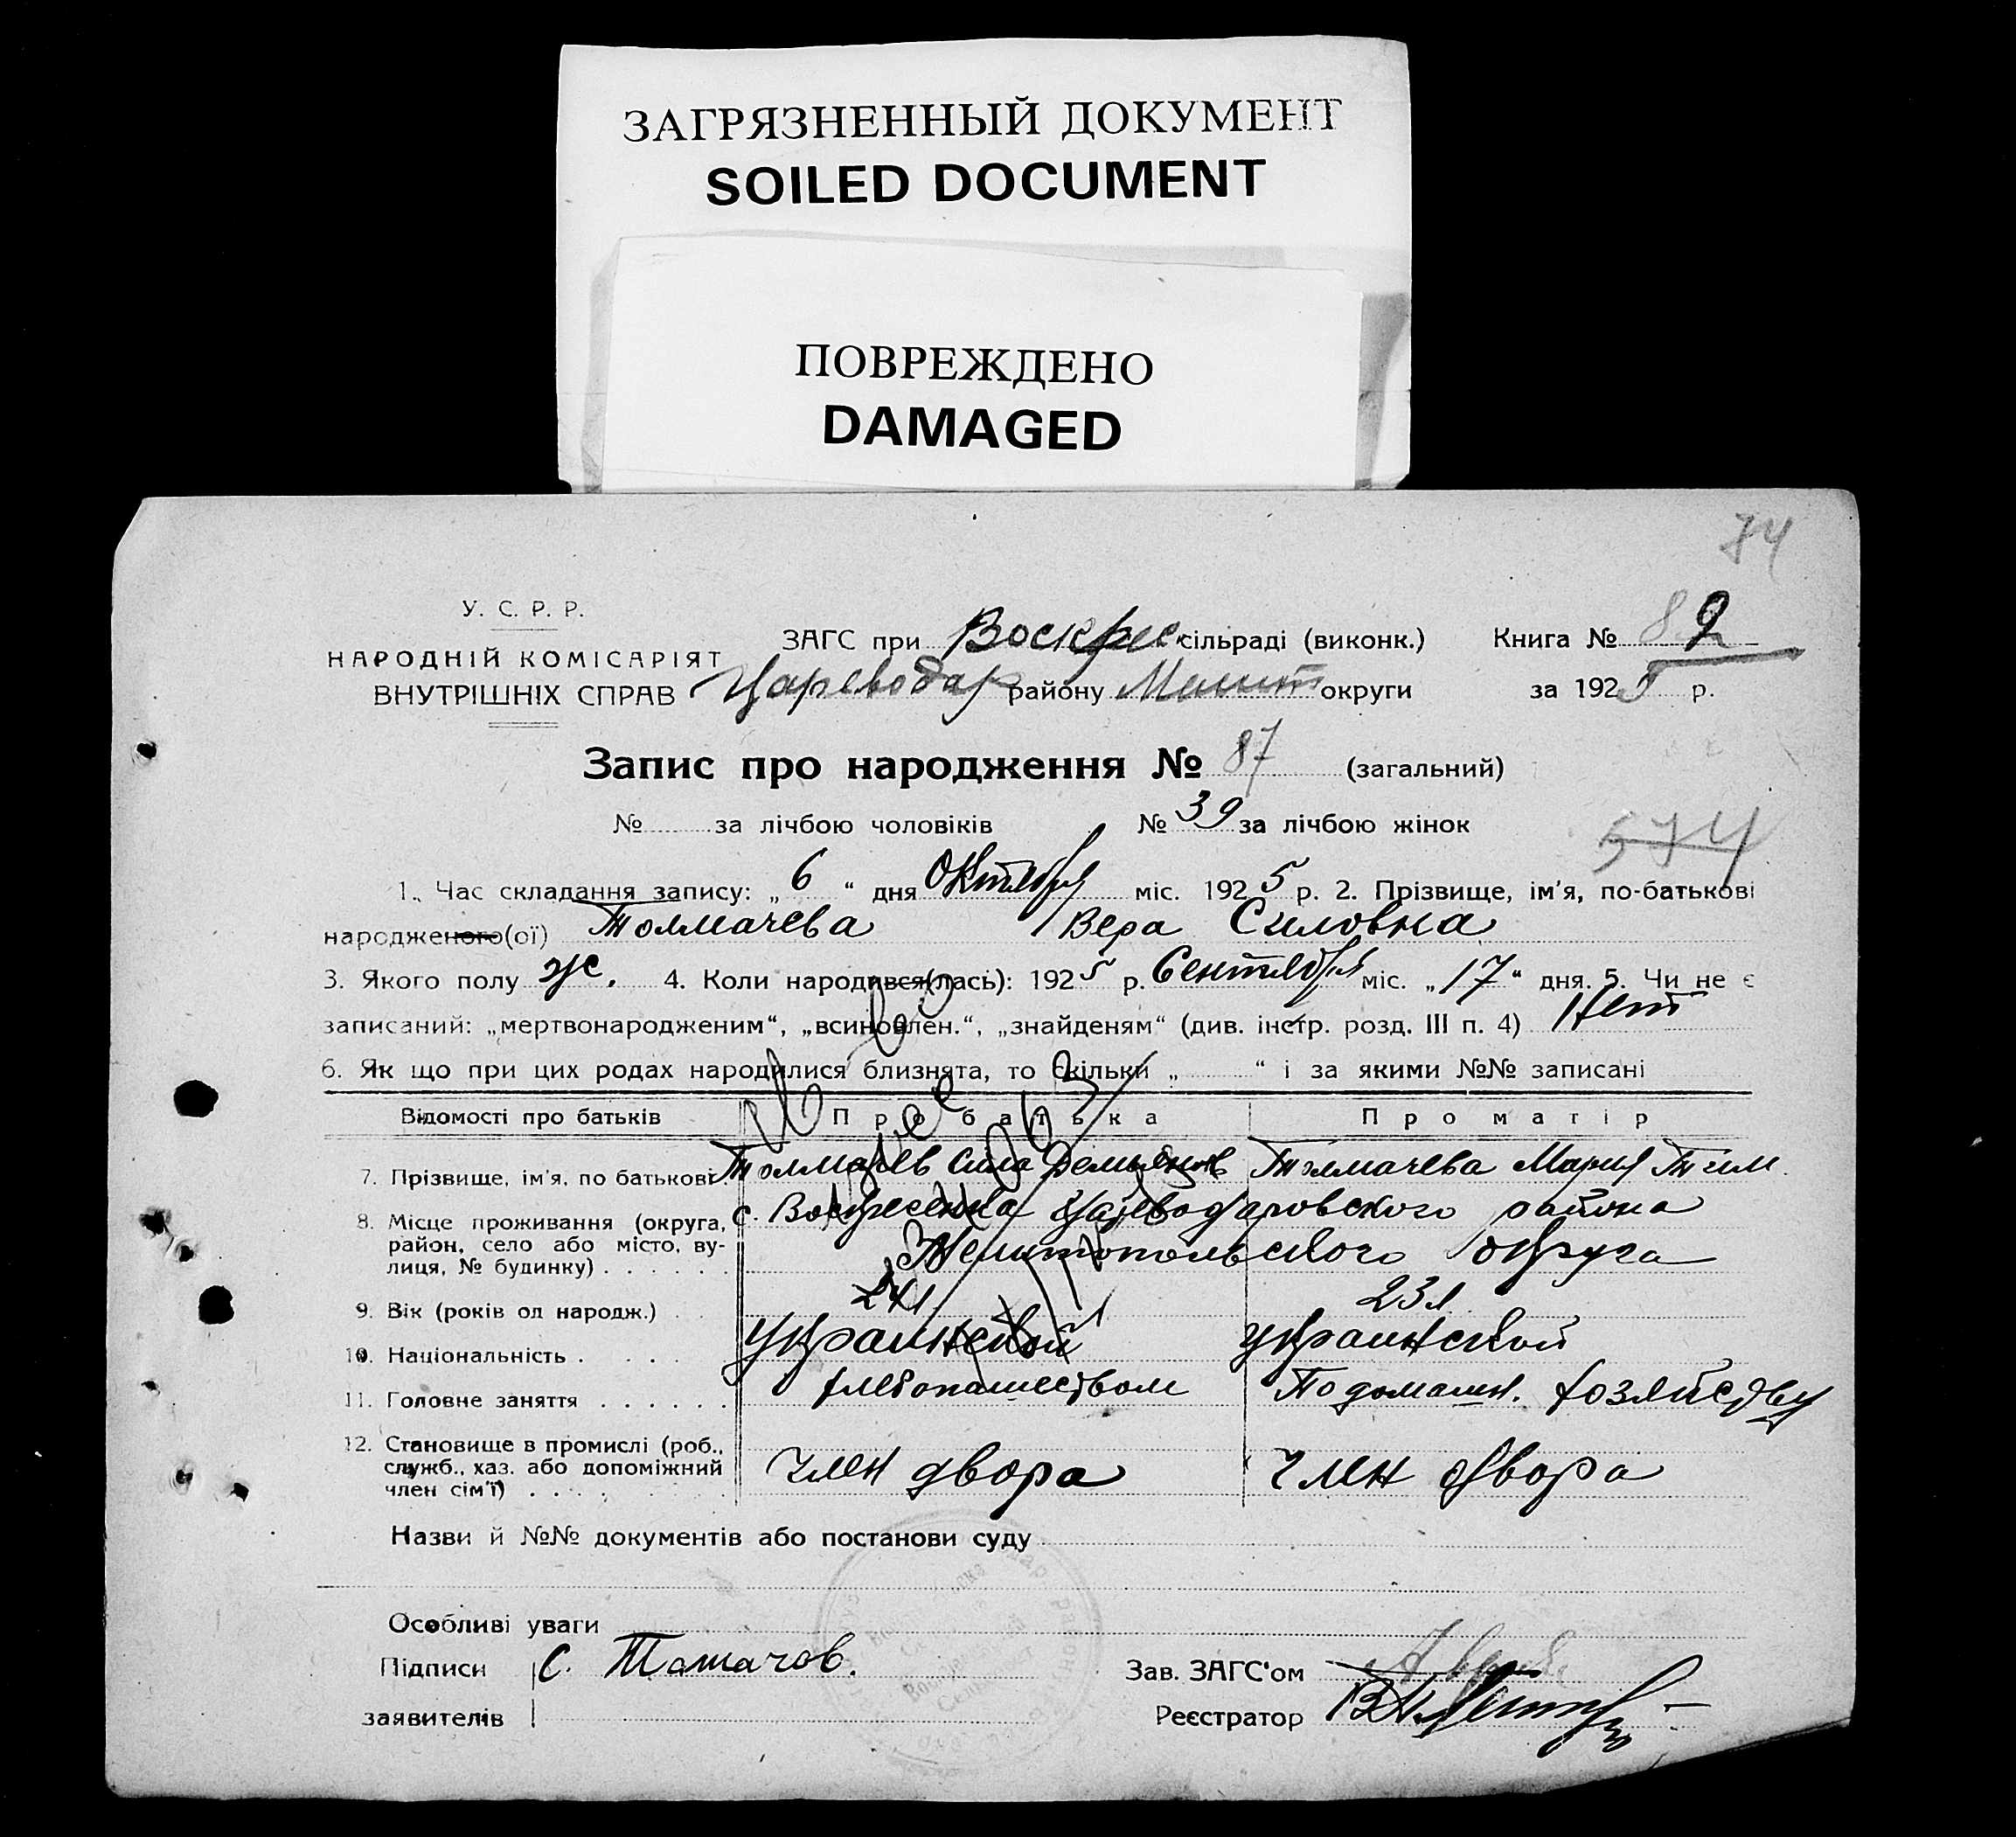 ЗАГРЯЗНЕННЫЙ ДОКУМЕНТ
SOILED DOCUMENT
ПОВРЕЖДЕНО
DAMAGED
74
У. С. Р. Р.
НАРОДНІЙ КОМІСАРІЯТ
ВНУТРІШНІХ СПРАВ
ЗАГС при Воскрес сільраді (виконк.) Книга № 82
Цареводар району Мелит округи за 1925 р.
Запис про народження № 87 (загальний)
№ за лічбою чоловіків № 39 за лічбою жінок
574
1. Час складання запису: „6“ дня Октября міс. 1925 р. 2. Прізвище, ім'я, по-батькові
народженого(ої) Толмачева Вера Силовна
3. Якого полу ж. 4. Коли народився(лась): 1925 р. Сентября міс. „17“ дня. 5. Чи не є
записаний: „мертвонародженим“, „всиновлен.“, „знайденям“ (див. інстр. розд. III п. 4) Нет
6. Як що при цих родах народилися близнята, то скільки „ “ і за якими №№ записані
Відомості про батьків Про батька Про матір
7. Прізвище, ім'я, по батькові Толмачев Сила Демьянов Толмачева Мария Тим.
8. Місце проживання (округа, район, село або місто, вулиця, № будинку) с. Воскресенка Цареводаровского района
Мелитопольского округа
9. Вік (років од народж.) 24 л 23 л
10. Національність украинской украинской
11. Головне заняття хлебопашеством По домашн. хозяйству
12. Становище в промислі (роб., служб., хаз. або допоміжний член сім'ї) член двора член двора
Назви й №№ документів або постанови суду
Особливі уваги
Підписи С. Толмачов. Зав. ЗАГС'ом
заявителів Реєстратор